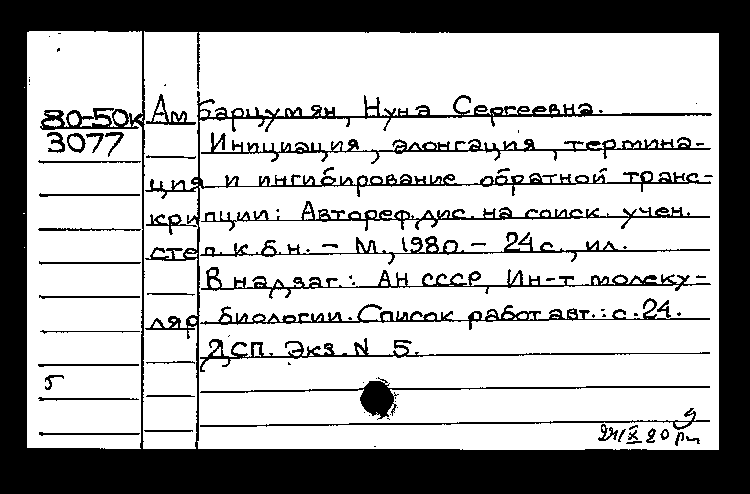 80-50к Амбарцумян, Нуна Сергеевна.
3077 Инициация, элонгация, термина-
ция и ингибирование обратной транс-
крипции: Автореф. дис. на соиск. учен.
степ. к.б.н. - М., 1980. - 24 с., ил.
В надзаг.: АН СССР, Ин-т молеку-
ляр. биологии. Список работ авт.: с. 24.
ДСП. Экз. N 5.
5